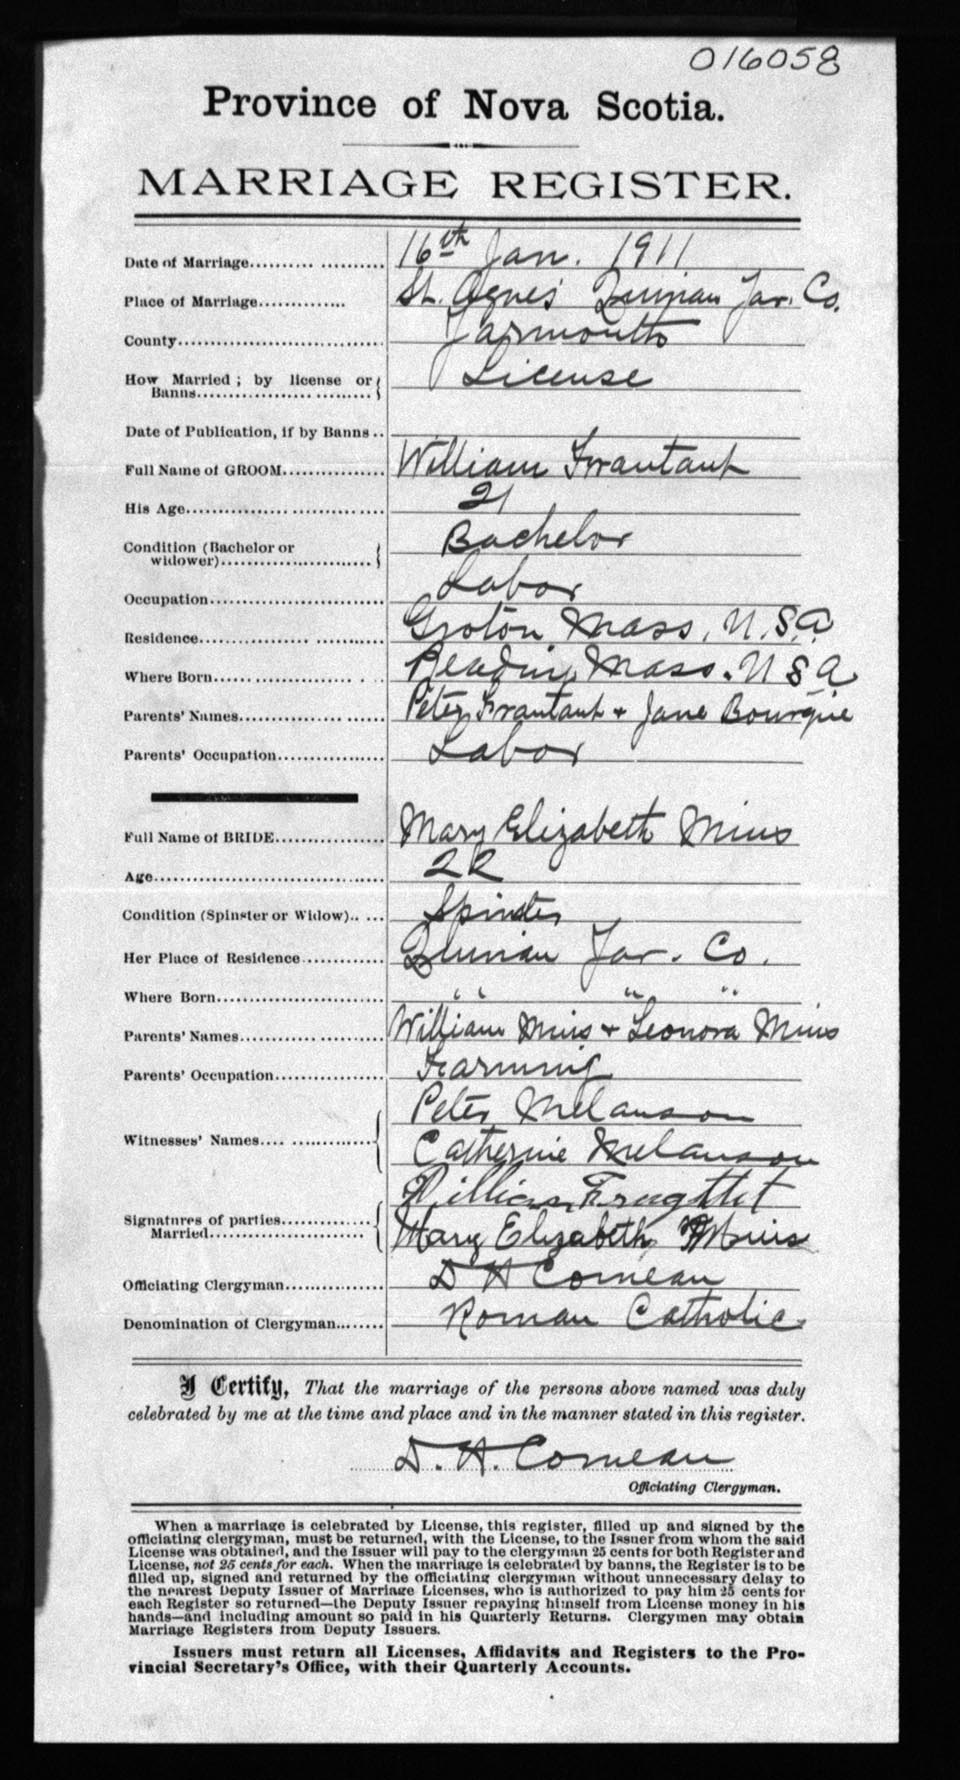 016058
Province of Nova Scotia.
MARRIAGE REGISTER.
Date of Marriage 16th Jan. 1911
Place of Marriage St. Agnes Quinan Yar. Co.
County Yarmouth
How Married ; by license or Banns License
Date of Publication, if by Banns
Full Name of GROOM William
His Age 21
Condition (Bachelor or widower) Bachelor
Occupation Labor
Residence Groton Mass. U.S.A
Where Born Reading Mass. U S A
Parents' Names Peter & Jane Bourque
Parents' Occupation Labor
Full Name of BRIDE Mary Elizabeth Mius
Age 22
Condition (Spinster or Widow) Spinster
Her Place of Residence Quinan Yar. Co.
Where Born " " "
Parents' Names William Mius & Leonora Mius
Parents' Occupation Farming
Witnesses' Names Peter Melanson
Catherine Melanson
Signatures of parties Married William
Mary Elizabeth Mius
Officiating Clergyman D H Comeau
Denomination of Clergyman Roman Catholic
I Certify, That the marriage of the persons above named was duly
celebrated by me at the time and place and in the manner stated in this register.
D. H. Comeau
Officiating Clergyman.
When a marriage is celebrated by License, this register, filled up and signed by the
officiating clergyman, must be returned, with the License, to the Issuer from whom the said
License was obtained, and the Issuer will pay to the clergyman 25 cents for both Register and
License, not 25 cents for each. When the marriage is celebrated by banns, the Register is to be
filled up, signed and returned by the officiating clergyman without unnecessary delay to
the nearest Deputy Issuer of Marriage Licenses, who is authorized to pay him 25 cents for
each Register so returned—the Deputy Issuer repaying himself from License money in his
hands—and including amount so paid in his Quarterly Returns. Clergymen may obtain
Marriage Registers from Deputy Issuers.
Issuers must return all Licenses, Affidavits and Registers to the Pro-
vincial Secretary's Office, with their Quarterly Accounts.